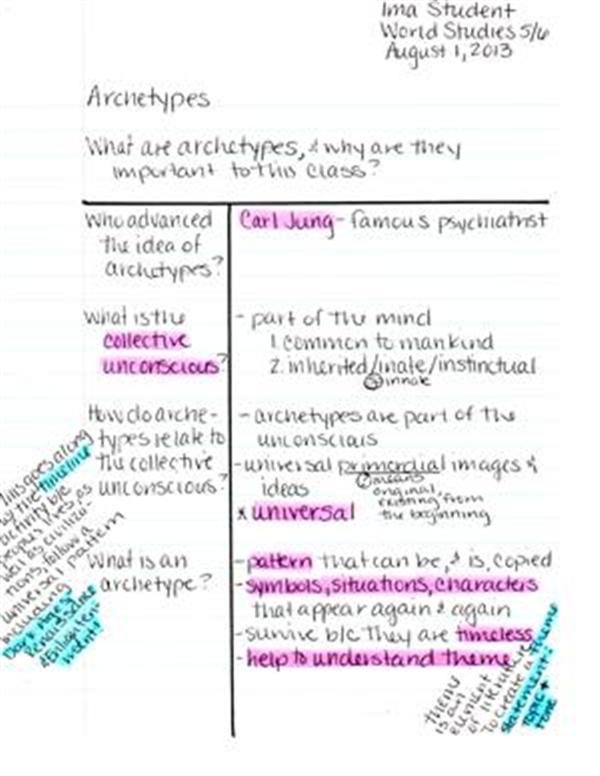 Ima Student
World Studies 5/6
August 1, 2013
Archetypes
What are archetypes, & why are they
important to this class?
Who advanced
the idea of
archetypes?
Carl Jung - famous psychiatrist
What is the
collective
unconscious?
- part of the mind
1. common to mankind
2. inherited/inate/instinctual
innate
How do arche-
types relate to
the collective
unconscious?
- archetypes are part of the
unconsciais
- universal primordial images &
ideas
means
original,
existing from
the beginning
* universal
This goes along
w/ the timeline
activity b/c
people's lives, as
well as civiliza-
tions, follow a
universal pattern
including
Dark Ages
Renaissance
& Enlighten-
ment!
What is an
archetype?
- pattern that can be, & is, copied
- symbols, situations, characters
that appear again & again
- survive b/c they are timeless
- help to understand theme
theme
is an
element
of literature
to create a theme
statement:
topic +
tone